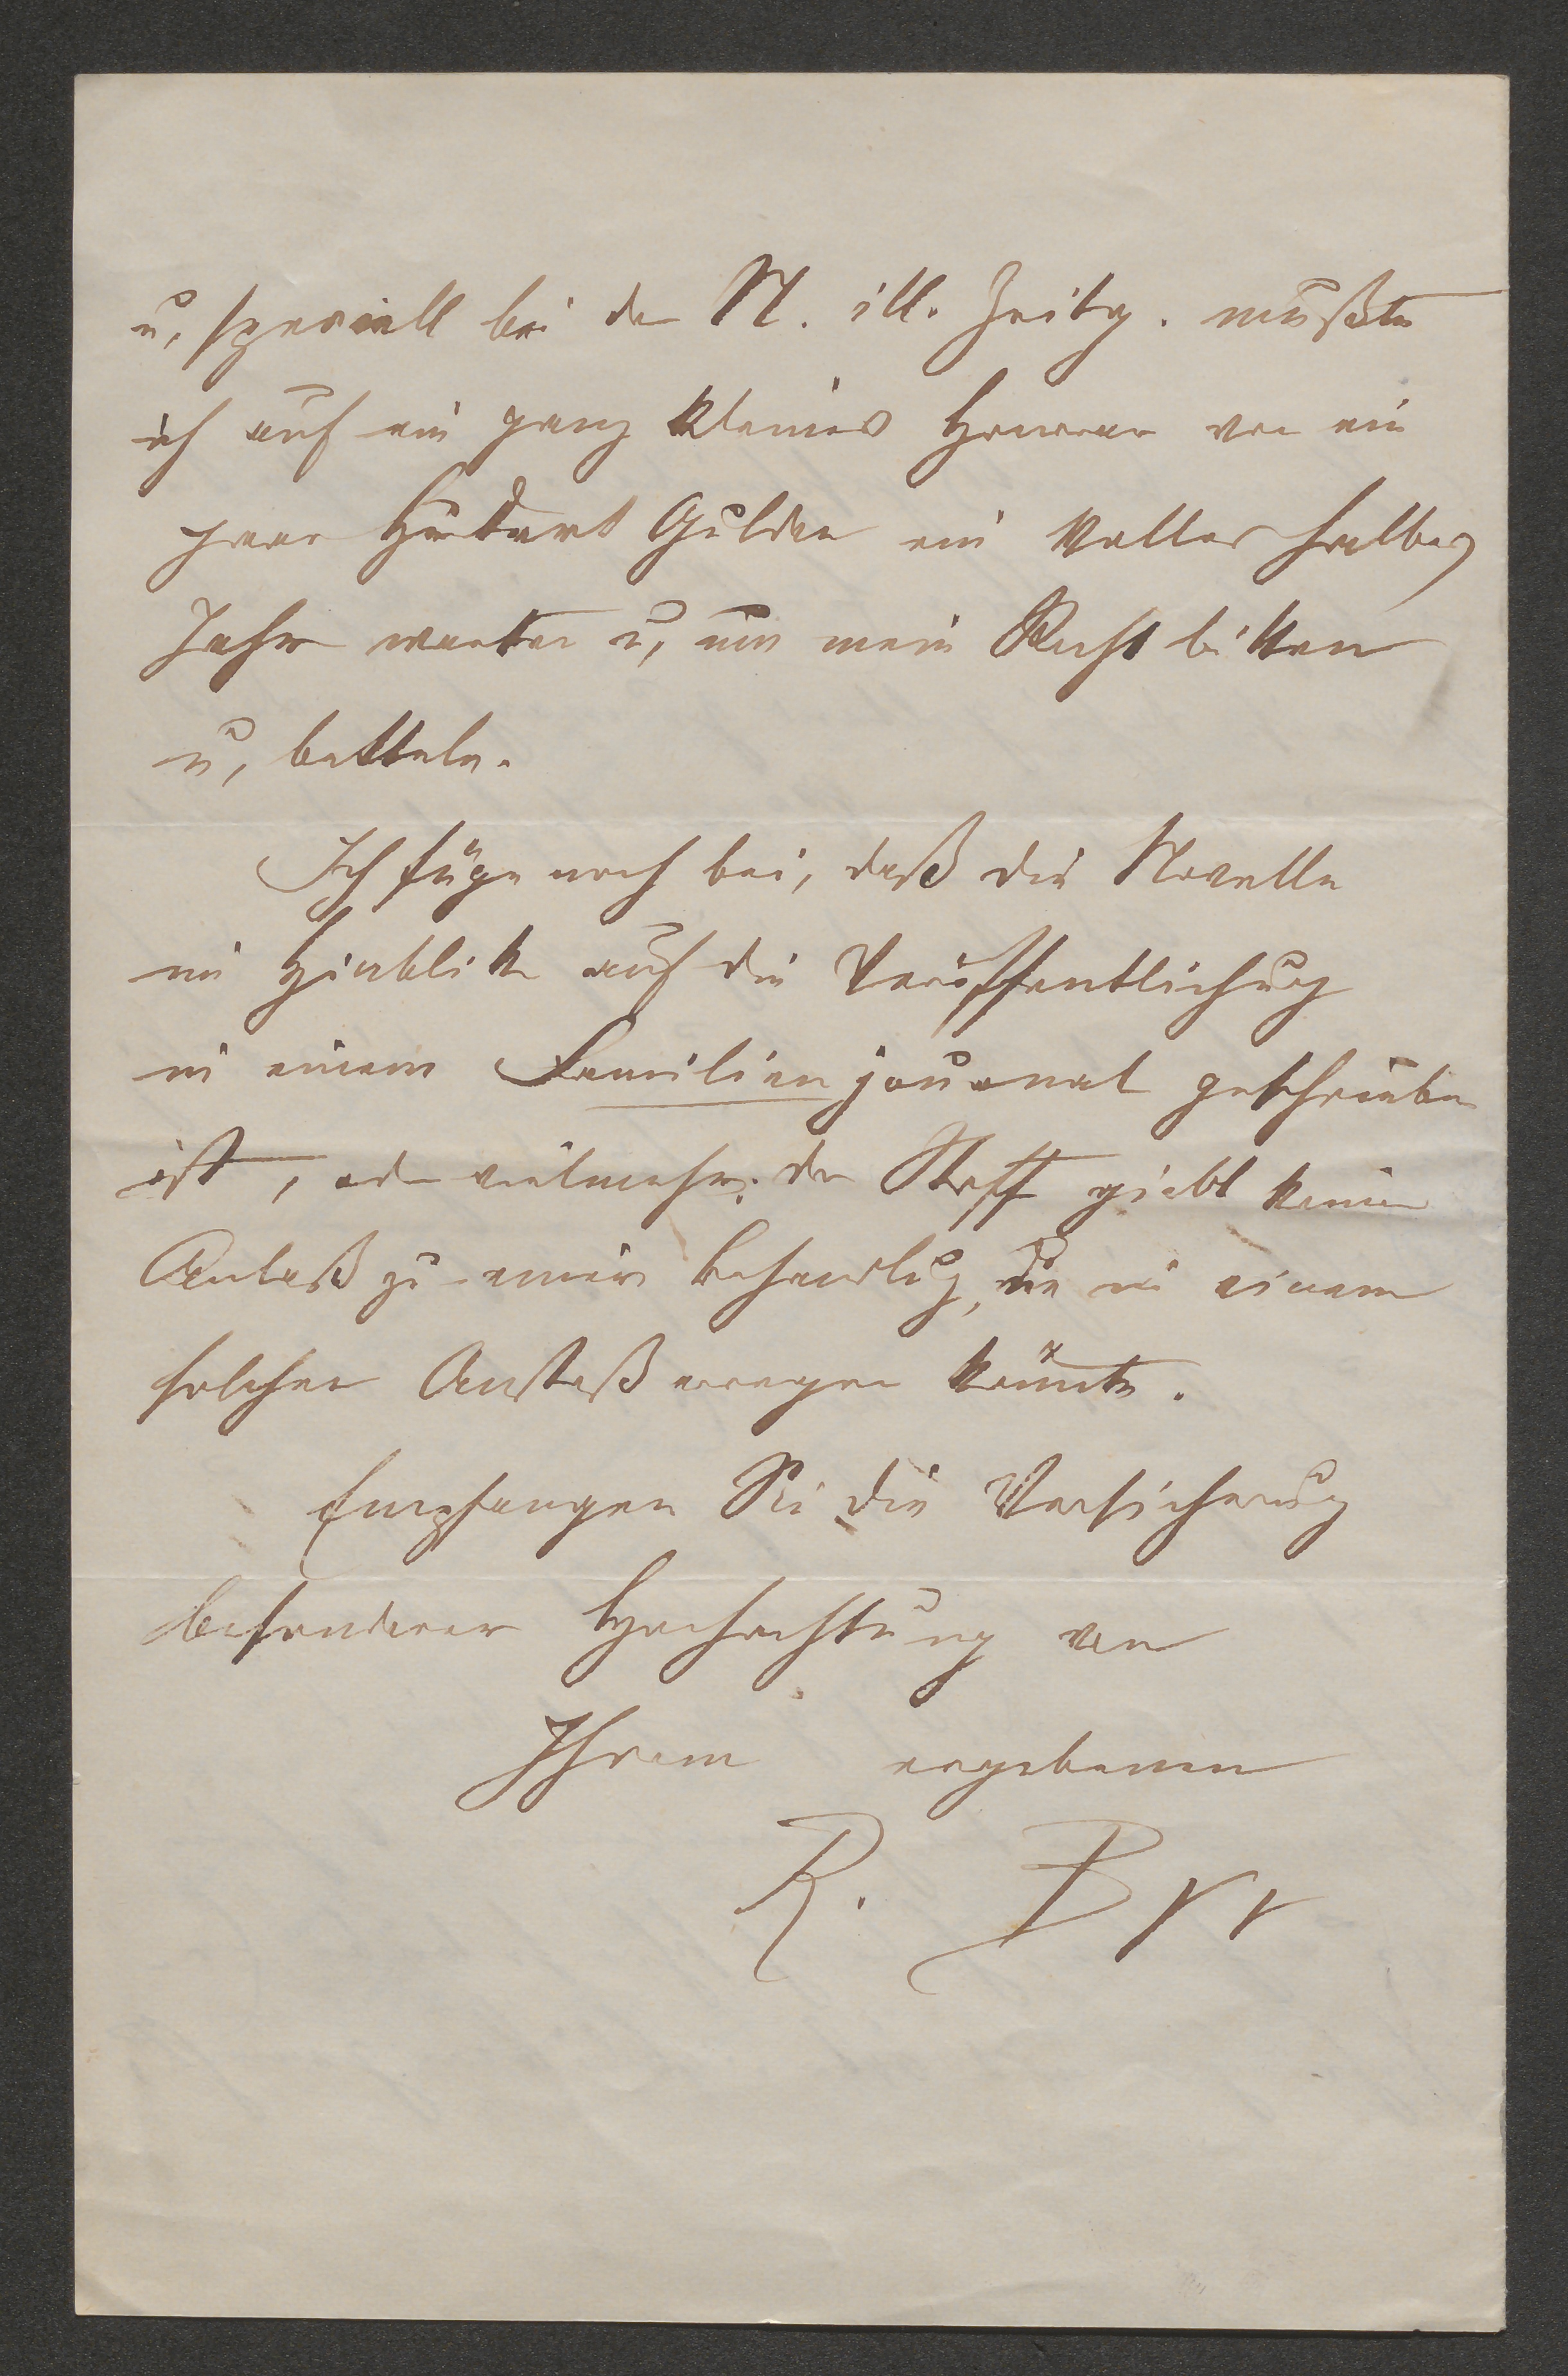 u, speciell bei der N. ill. Zeitg. mußte
ich auf ein ganz kleines Honorar von ein
paar Hundert Gulden ein volles halbes
Jahr warten u, um mein Recht bitten
u, betteln.
Ich füge noch bei, daß die Novelle
im Hinblick auf die Veröffentlichung
in einem Familienjournal geschrieben
ist, oder vielmehr: der Stoff giebt keinen
Anlaß zu einer Behandlung, die in einem
solchen Anstoß erregen könnte.
Empfangen Sie die Versicherung
besonderer Hochachtung von
Ihrem ergebenen
R. Byr